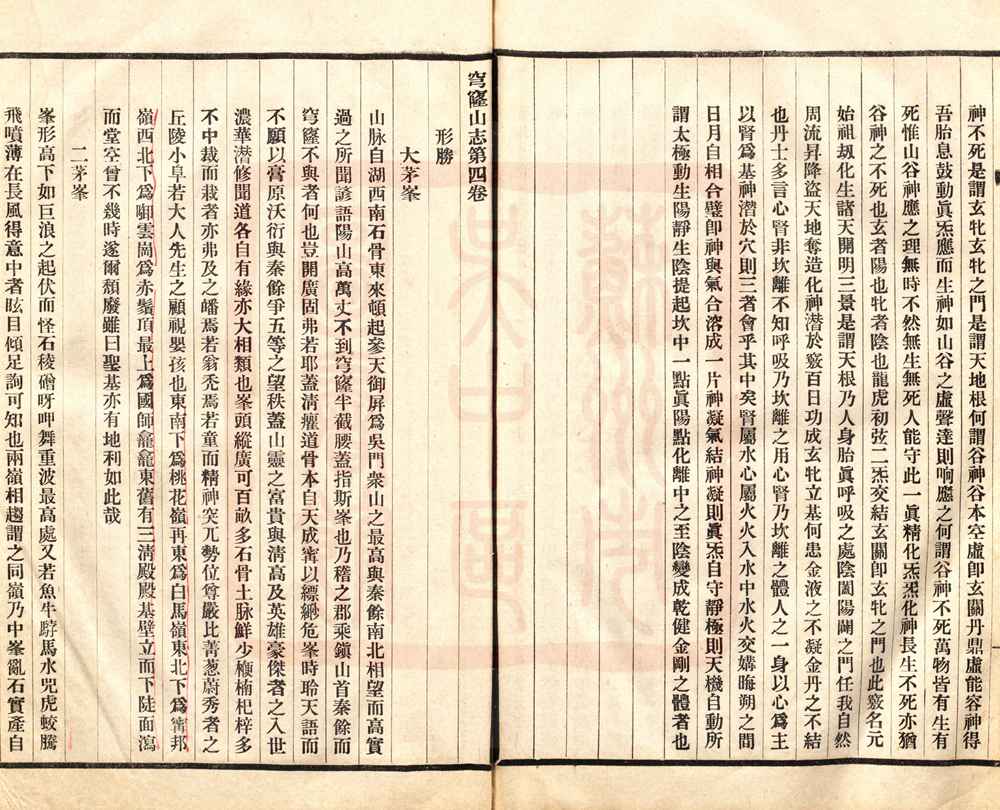 神不死是謂玄牝玄牝之門是謂天地根何謂谷神谷本空虛卽玄關丹鼎虛能容神得
吾胎息鼓動眞炁應而生神如山谷之虛聲達則响應之何謂谷神不死萬物皆有生有
死惟山谷神應之理無時不然無生無死人能守此一眞精化炁炁化神長生不死亦猶
谷神之不死也玄者陽也牝者陰也龍虎初弦二炁交結玄關卽玄牝之門也此竅名元
始祖刼化生諸天開明三景是謂天根乃人身胎眞呼吸之處陰闔陽闢之門任我自然
周流昇降盜天地奪造化神潛於竅百日功成玄牝立基何患金液之不凝金丹之不結
也丹士多言心腎非坎離不知呼吸乃坎離之用心腎乃坎離之體人之一身以心爲主
以腎爲基神潛於穴則三者會乎其中矣腎屬水心屬火火入水中水火交媾晦朔之間
日月自相合璧卽神與氣合溶成一片神凝氣結神凝則眞炁自守靜極則天機自動所
謂太極動生陽靜生陰提起坎中一點眞陽點化離中之至陰變成乾健金剛之體者也
穹窿山志第四卷
形勝
大茅峯
山脉自湖西南石骨東來頓起參天御屏爲吳門衆山之最高與秦餘南北相望而高實
過之所聞諺語陽山高萬丈不到穹窿半截腰蓋指斯峯也乃稽之郡乘鎭山首秦餘而
穹窿不與者何也豈開廣固弗若耶蓋清癯道骨本自天成寗以縹緲危峯時聆天語而
不願以膏原沃衍與秦餘爭五等之望秩蓋山靈之富貴與清高及英雄豪傑者之入世
濃華潜修聞道各自有緣亦大相類也峯頭縱廣可百畝多石骨土脉鮮少楩楠杞梓多
不中裁而栽者亦弗及之皤焉若翁禿焉若童而精神突兀勢位尊嚴比菁葱蔚秀者之
丘陵小阜若大人先生之顧視嬰孩也東南下爲桃花嶺再東爲白馬嶺東北下爲甯邦
嶺西北下爲啣雲崗爲赤鬚頂最上爲國師龕龕東舊有三清殿殿基壁立而下陡面瀉
而堂空曾不幾時遂爾頹廢雖曰聖基亦有地利如此哉
二茅峯
峯形高下如巨浪之起伏而怪石稜磳呀呷舞重波最高處又若魚牛駮馬水兕虎蛟騰
飛噴薄在長風得意中者眩目傾足詢可知也兩嶺相趨謂之同嶺乃中峯亂石實產自